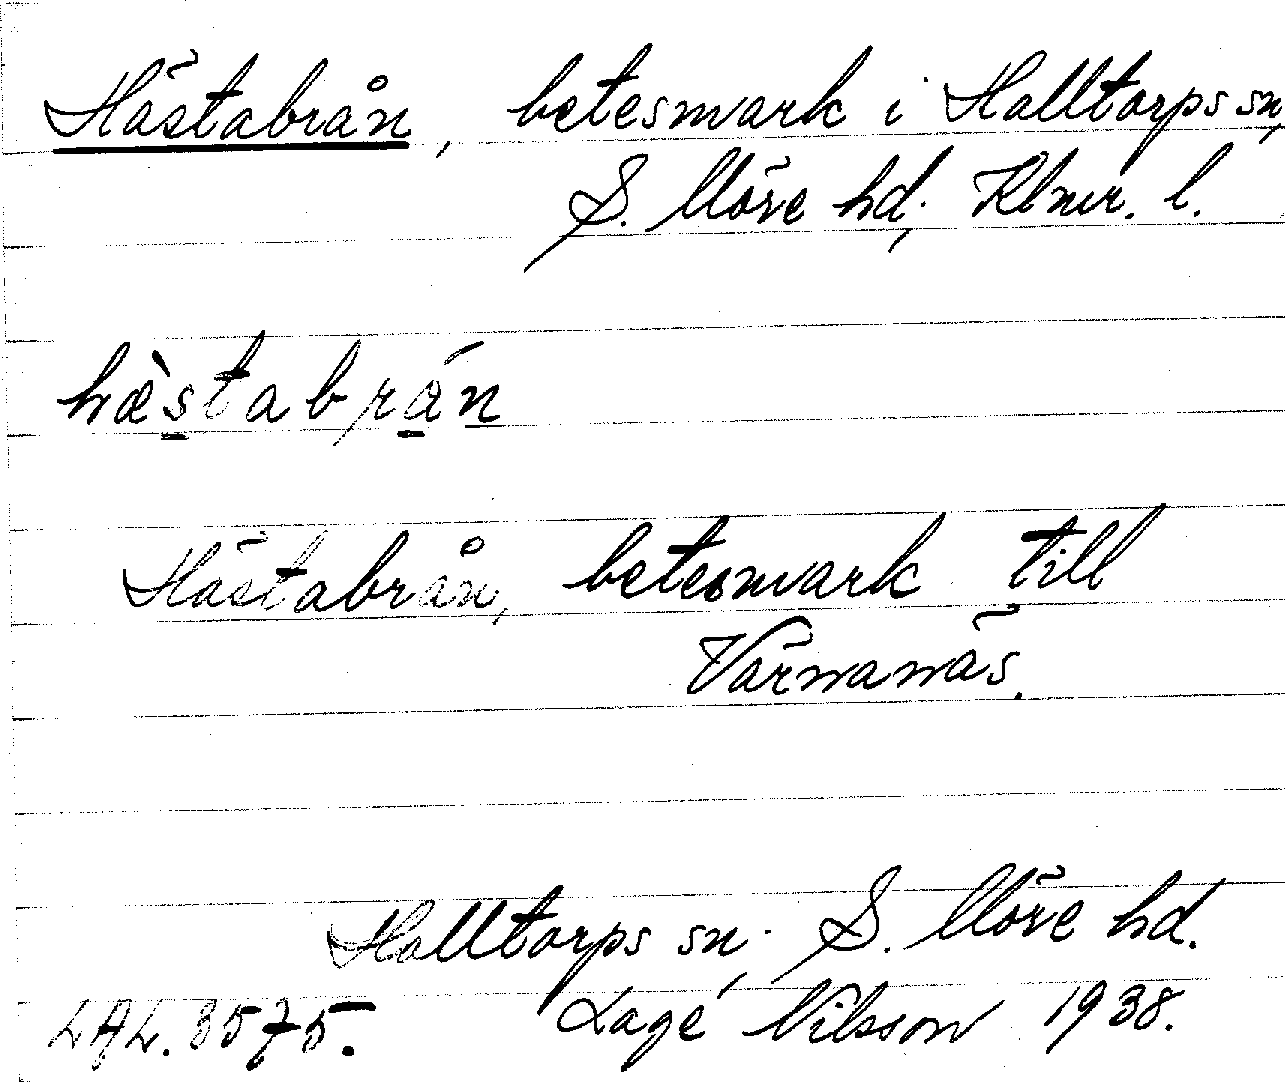 Hästabrån, betesmark i Halltorps sn,
S. Möre hd, Klmr. l.
hæ̀stabrán
Hästabrån, betesmark till
Värnanäs.
Halltorps sn, S. Möre hd.
LAL. 3575. Lagé Nilsson 1938.